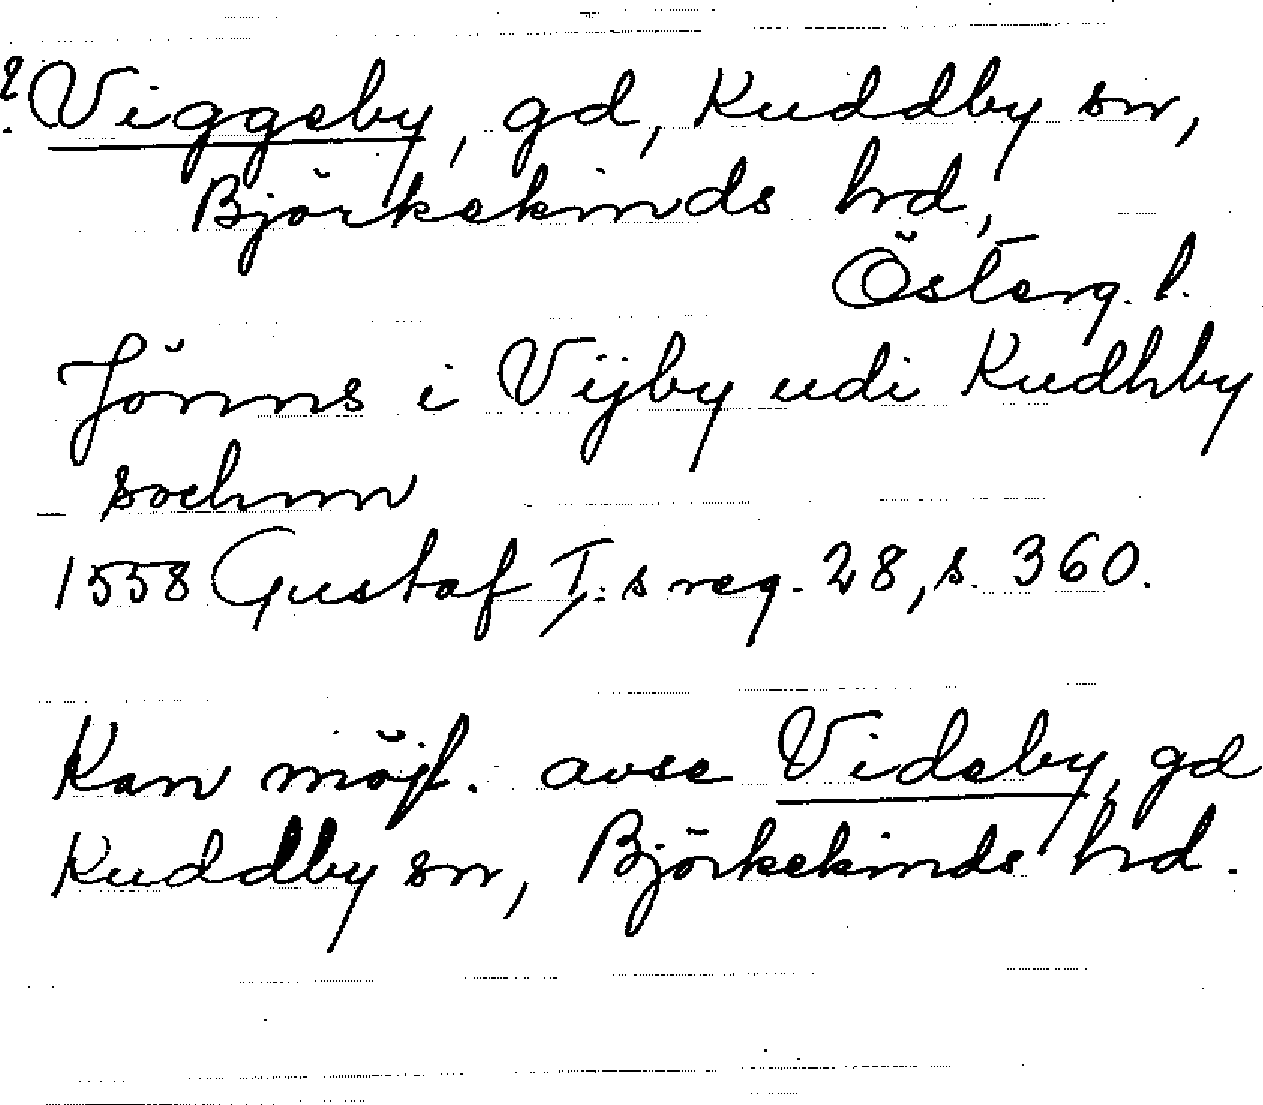 ? Viggeby, gd, Kuddby sn,
Björkekinds hd,
Österg. l.
Jönns i Vijby udi Kudhby
sochnn
1558 Gustaf I:s reg. 28, s. 360.
Kan möjl. avse Videby, gd
Kuddby sn, Björkekinds hd.